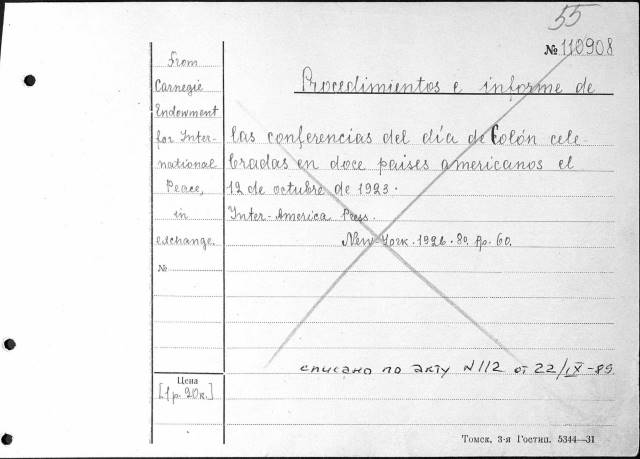 55
№ 110908
From
Carnegie
Endowment
for Inter-
national
Peace,
in
exchange.
№
Procedimientos e informe de
las conferencias del día de Colón cele
bradas en doce paises americanos el
12 de octubre de 1923.
Inter-America Press.
New-York. 1926. 80. Pp. 60.
списано по акту N 112 от 22/IX-89.
Цена
[1р. 20к.]
Томск, 3-я Гостип. 5344—31